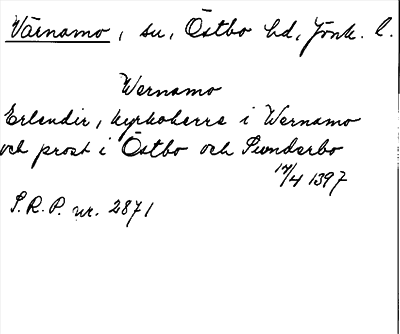 Värnamo, sn, Östbo hd, Jönk. l.
Wernamo
Erlendir, kyrkoherre i Wernamo
och prost i Östbo och Sunderbo
17/4 1397
S.R.P. nr. 2871